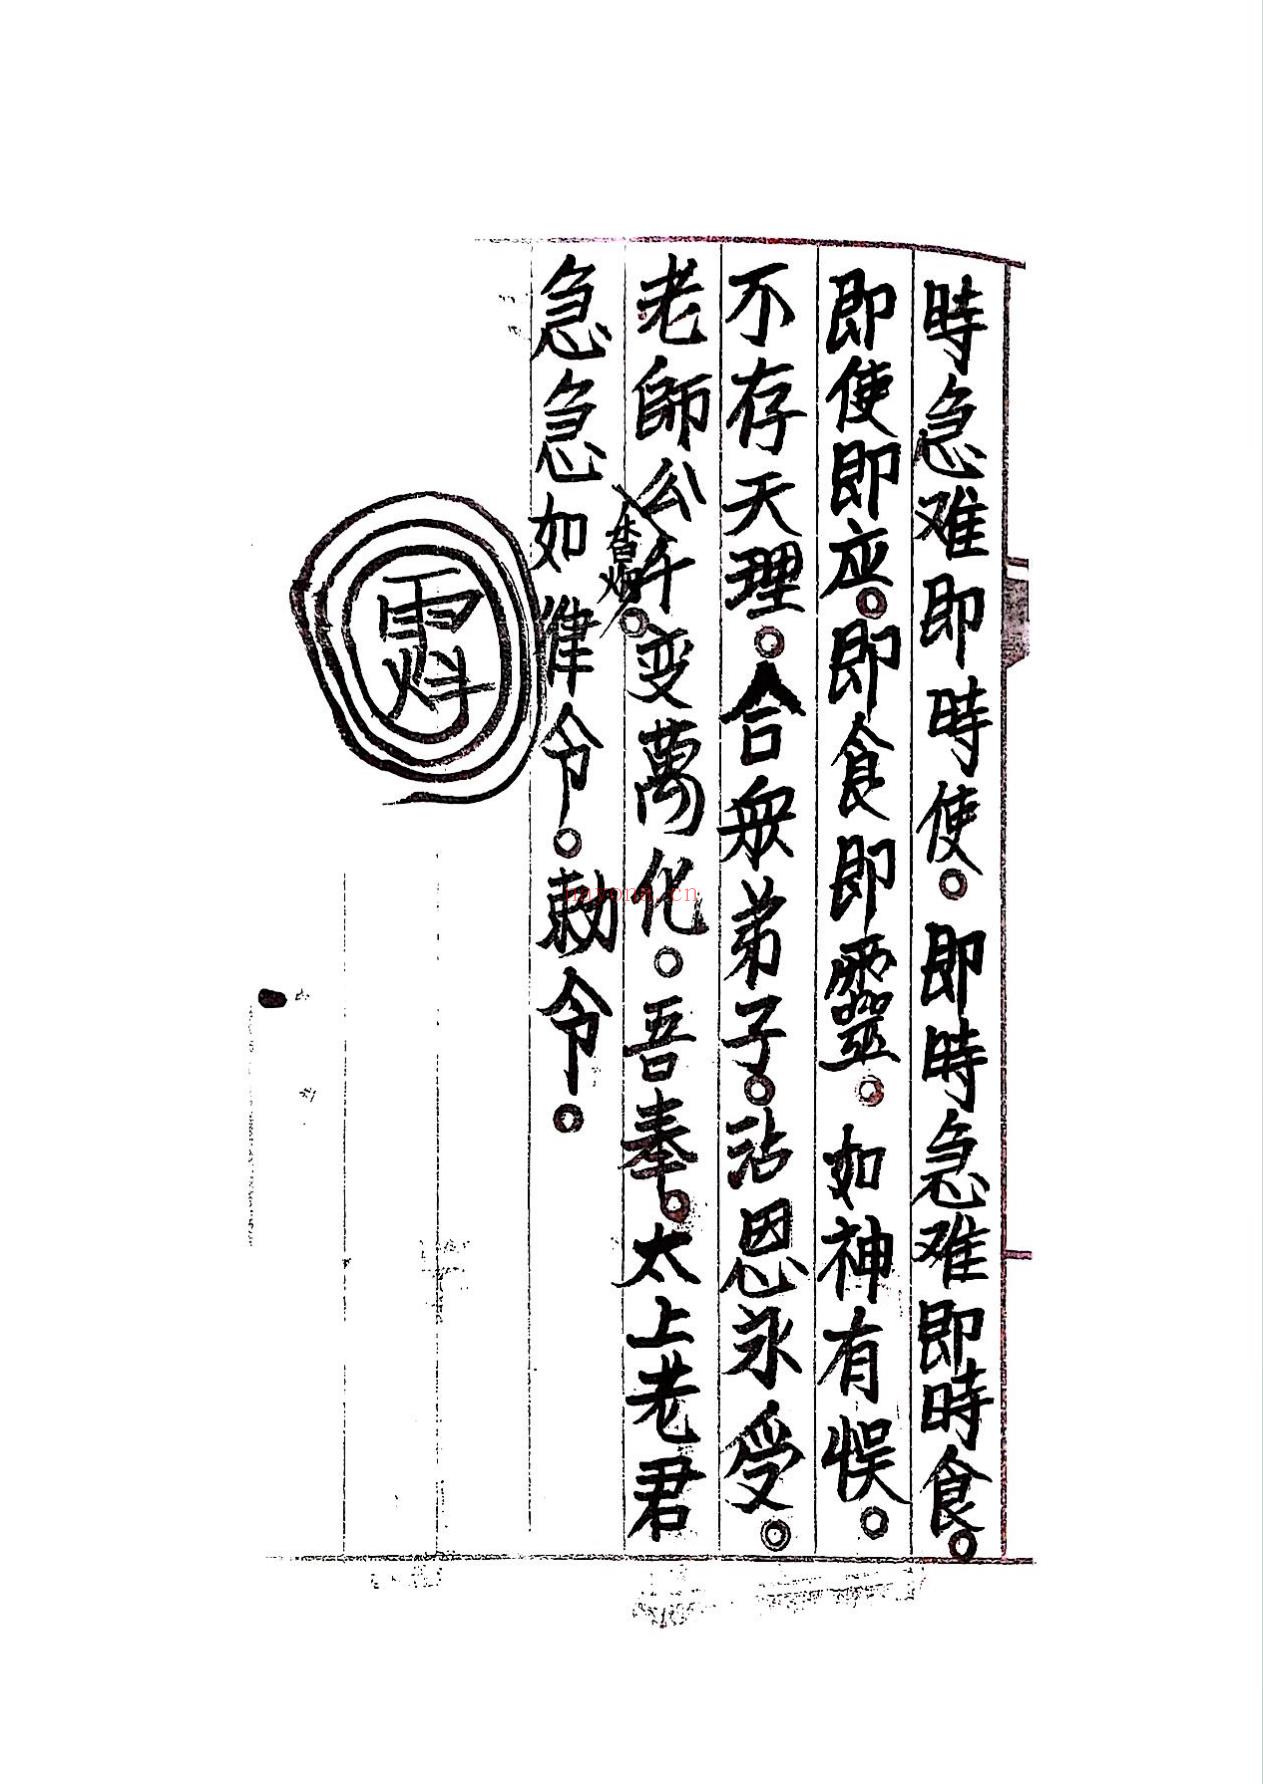 時急难即時使。即時急难即時食。
即使即应。即食即靈。如神有悮。
不存天理。合众弟子。沾恩永受。
老師公千变萬化。吾奉。太上老君
急急如律令。敕令。